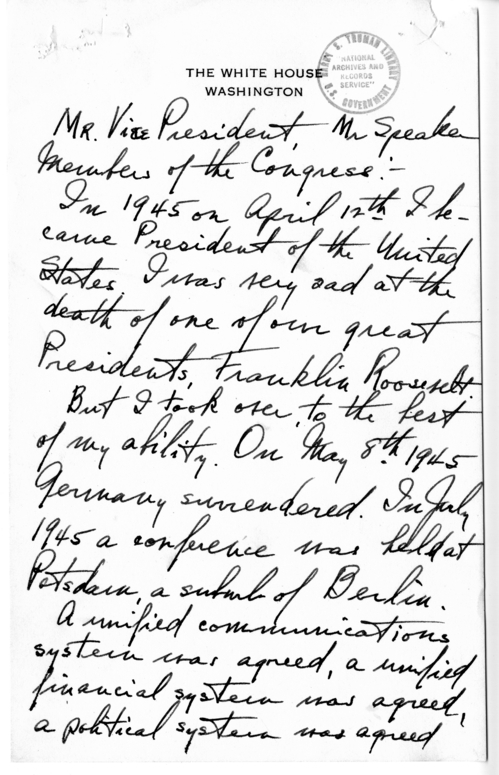 THE WHITE HOUSE
WASHINGTON
HARRY S. TRUMAN LIBRARY
"NATIONAL
ARCHIVES AND
RECORDS
SERVICE"
U.S. GOVERNMENT
Mr. Vice President, Mr Speaker
Members of the Congress:-
In 1945 on April 12th I be-
came President of the United
States. I was very sad at the
death of one of our great
Presidents, Franklin Roosevelt.
But I took over, to the best
of my ability. On May 8th 1945
Germany surrendered. In July
1945 a conference was held at
Potsdam, a suburb of Berlin.
A unified communications
system was agreed, a unified
financial system was agreed,
a political system was agreed